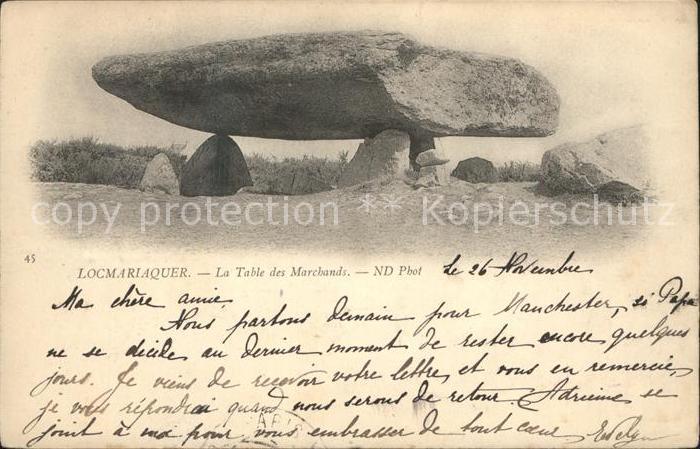 copy protection ** Kopierschutz
45
LOCMARIAQUER. — La Table des Marchands. — ND Phot
Le 26 Novembre
Ma chère amie,
Nous partons demain pour Manchester, si Papa
ne se décide au dernier moment de rester encore quelques
jours. Je viens de recevoir votre lettre, et vous en remercie,
je vous répondrai quand nous serons de retour. Adrienne se
joint à moi pour vous embrasser de tout cœur